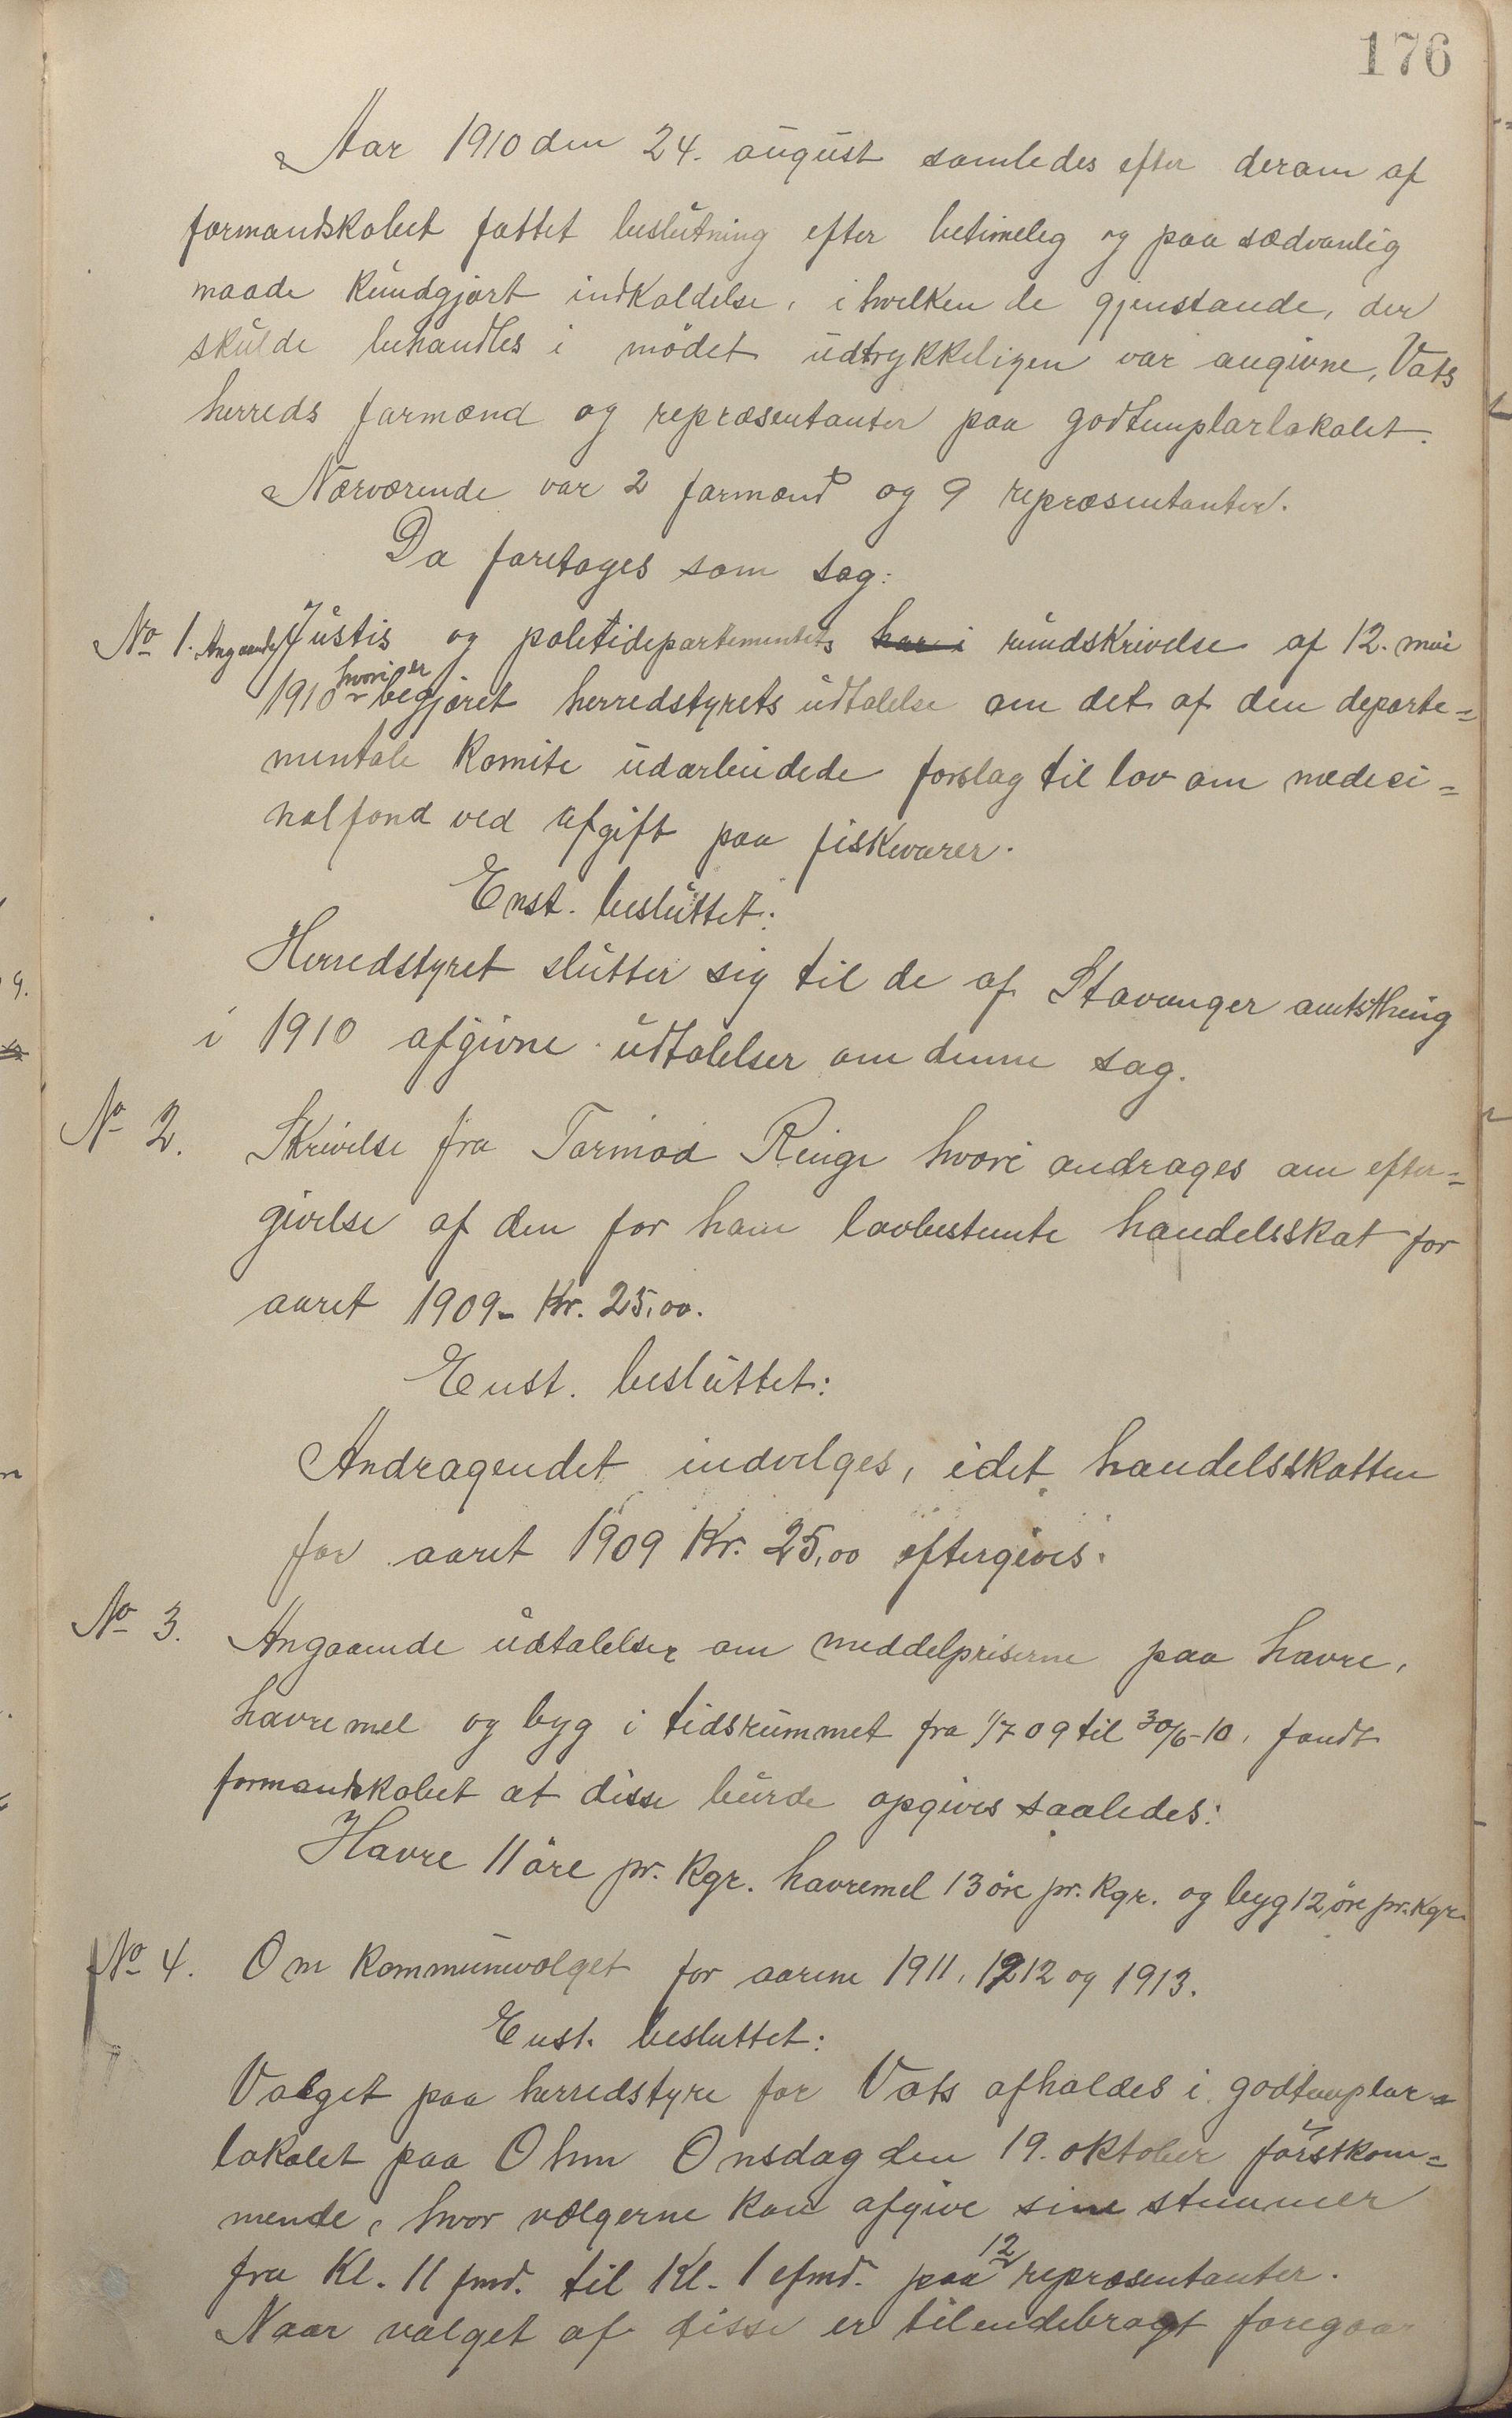 176
Aar 1910 den 24. august samledes efter derom af
formandskabet fattet beslutning efter betimelig og paa sædvanlig
maade kundgjort indkaldelse, i hvilken de gjenstande, der
skulde behandles i mödet udtrykkeligen var angivne, Vats
herreds formænd og repræsentanter paa godtemplarlokalet.
Nærværende var 2 formænd og 9 repræsentanter.
Da foretoges som sag:
No 1. Angaaende Justis og politidepartementets har i rundskrivelse af 12. mai
1910 hvori er begjæret herredstyrets udtalelse om det af den departe=
mentale komite udarbeidede forslag til lov om medeci=
nalfond ved afgift paa fiskevarer.
Enst. besluttet:
Herredstyret slutter sig til de af Stavanger amtsthing
i 1910 afgivne udtalelser om denne sag.
No 2. Skrivelse fra Tormod Ringe hvori andrages om efter=
givelse af den for ham lovbestemte handelsskat for
aaret 1909 - Kr. 25,00.
Enst. besluttet:
Andragendet indvilges, idet handelsskatten
for aaret 1909 Kr. 25,00 eftergives.
No 3. Angaaende udtalelser om meddelpriserne paa havre,
havremel og byg i tidsrummet fra 1/7 09 til 30/6-10, fandt
formandskabet at disse burde opgives saaledes:
Havre 11 öre pr. kgr. havremel 13 öre pr. kgr. og byg 12 öre pr. kgr.
No 4. Om kommunevalget for aarene 1911, 1912 og 1913.
Enst. besluttet:
Valget paa herredstyre for Vats afholdes i godtemplar=
lokalet paa Ohm Onsdag den 19. oktober förstkom=
mende, hvor vælgerne kan afgive sine stemmer
fra Kl. 11 fmd. til Kl. 1 efmd. paa 12 repræsentanter.
Naar valget af disse er tilendebragt foregaar